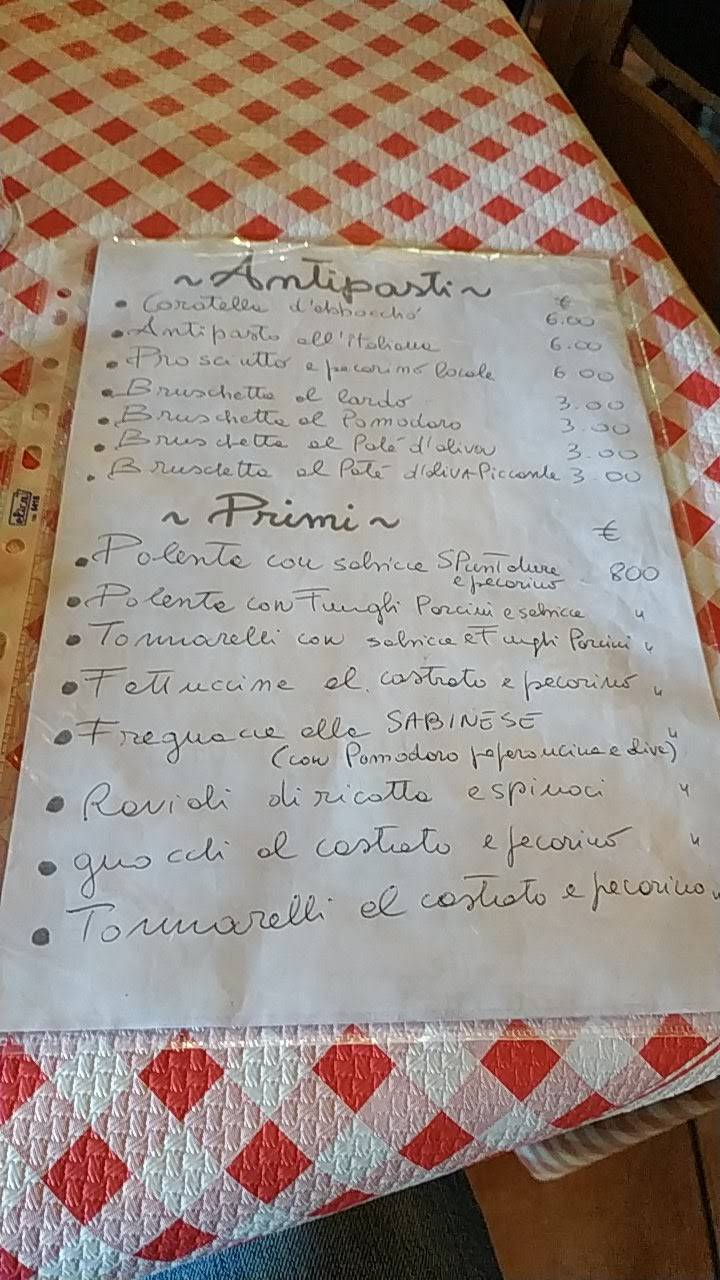 ~ Antipasti ~
€
• Coratella d'abbacchio 6.00
• Antipasto all'italiana 6.00
• Prosciutto e pecorino locale 6.00
• Bruschetta al lardo 3.00
• Bruschetta al Pomodoro 3.00
• Bruschetta al Paté d'oliva 3.00
• Bruscletta al Paté d'oliva Piccante 3.00
~ Primi ~
€
• Polenta con salsicce SPuntature
e pecorino 800
• Polenta con Funghi Porcini e salsicce "
• Tonnarelli con salsicce e Funghi Porcini "
• Fettuccine al castrato e pecorino "
• Fregnacce alla SABINESE "
(con Pomodoro peperoncino e olive)
• Ravioli di ricotta e spinaci "
• gnocchi al castrato e pecorino "
• Tonnarelli al castrato e pecorino "